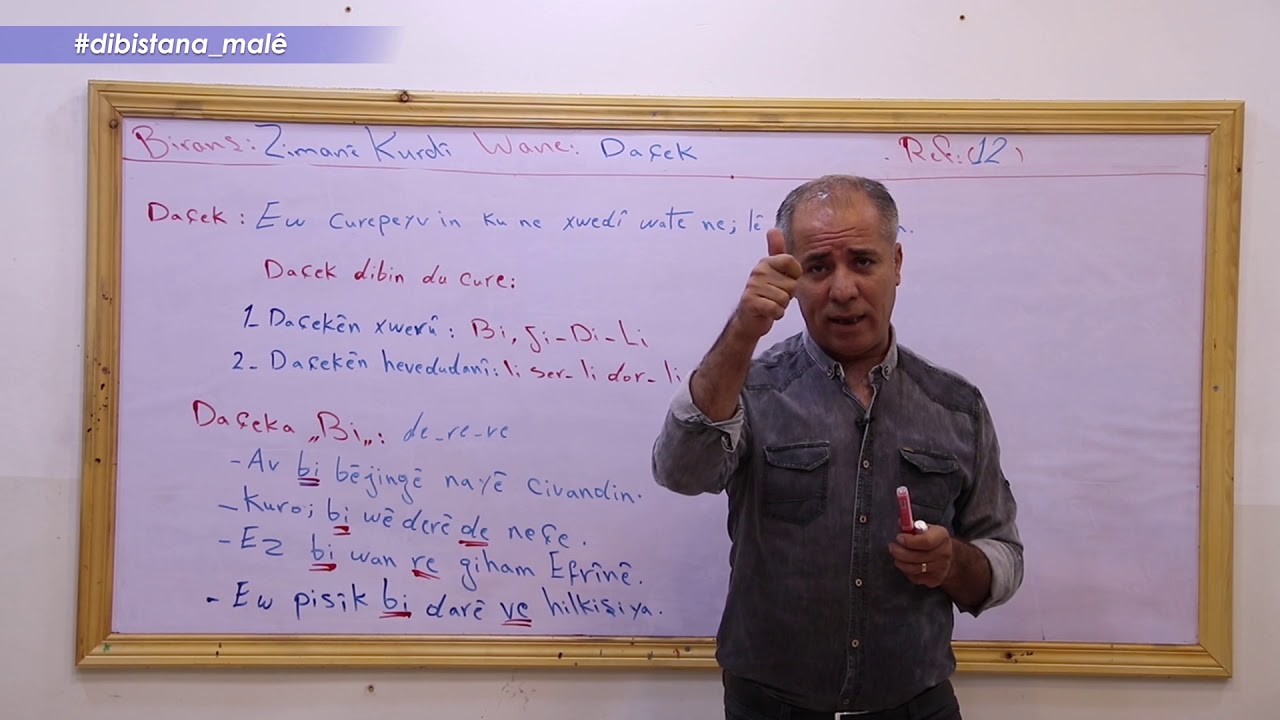 #dibistana_malê
Biranş: Zimanê Kurdî Wane: Daçek Ref: (12)
Daçek: Ew curepeyv in ku ne xwedî wate ne; lê n.
Daçek dibin du cure:
1_ Daçekên xwerû: Bi, ji_Di_Li
2_ Daçekên hevedudanî: li ser_ li dor_ li
Daçeka „Bi„: de_re_ve
- Av bi bêjingê nayê civandin.
- Kuro; bi wê derê de neçe.
- Ez bi wan re giham Efrînê.
- Ew pisîk bi darê ve hilkişiya.